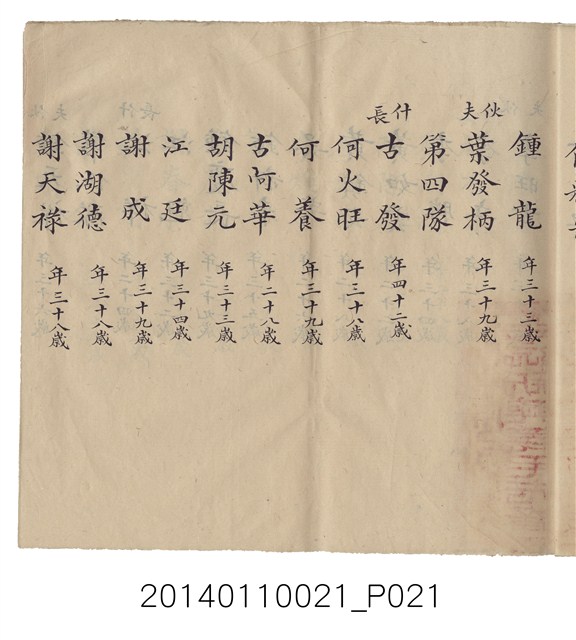 鍾龍 年三十三歲
伙夫 葉發柄 年三十九歲
第四隊
什長 古發 年四十二歲
何火旺 年三十八歲
何養 年三十九歲
古阿華 年二十八歲
胡陳元 年三十三歲
江廷 年三十四歲
謝成 年三十九歲
謝湖德 年三十八歲
謝天祿 年三十八歲
20140110021_P021